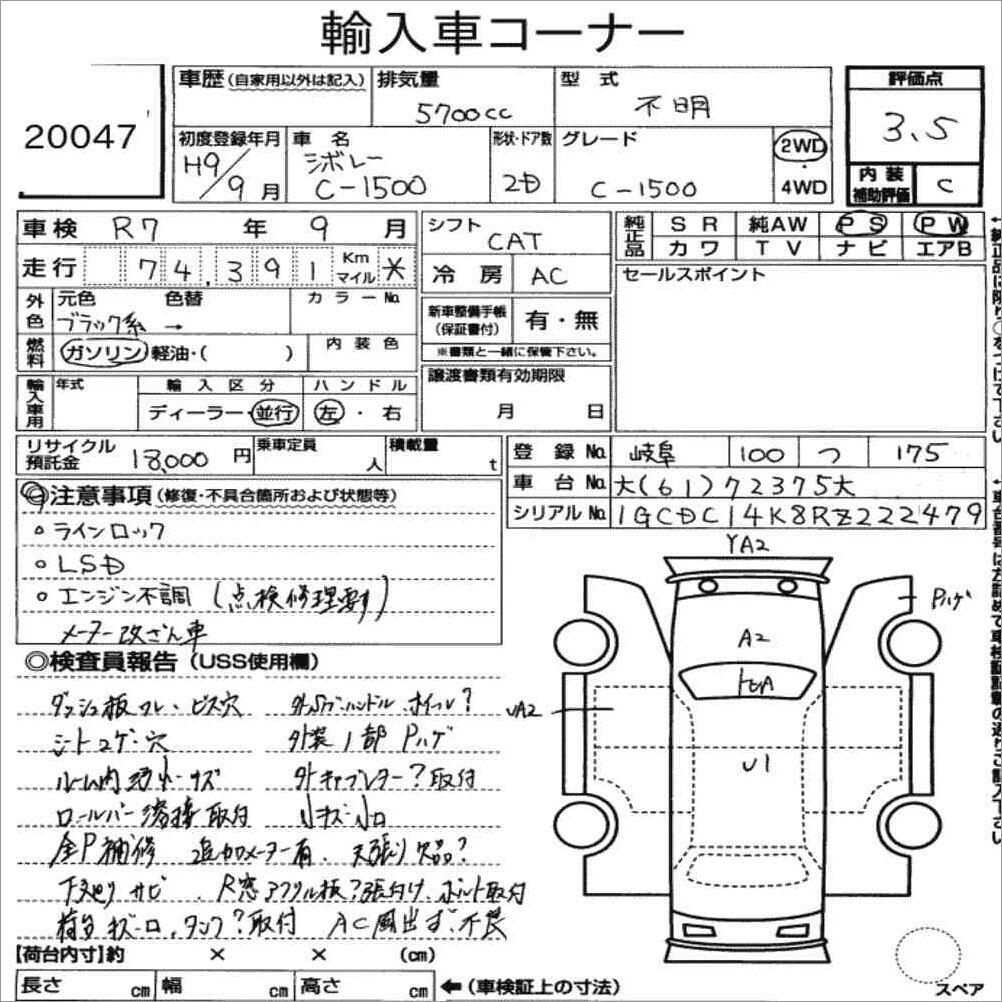 輸入車コーナー
20047
車歴(自家用以外は記入) 排気量 5700cc 型式 不明
評価点 3.5
初度登録年月 H9/9月 車名 シボレー C-1500 形状・ドア数 2D グレード C-1500 2WD・4WD
内装補助評価 C
車検 R7年9月 シフト CAT
純正品 SR 純AW PS PW
カワ TV ナビ エアB
走行 74,391 Km マイル * 冷房 AC
セールスポイント
外色 元色 色替 カラーNo.
ブラック系 →
新車整備手帳(保証書付) 有・無
※書類と一緒に保管下さい。
燃料 ガソリン 軽油・( ) 内装色
輸入車用 年式 輸入区分 ハンドル
ディーラー・並行 左・右
譲渡書類有効期限 月 日
リサイクル預託金 18,000円 乗車定員 人 積載量 t
登録No. 岐阜 100 つ 175
車台No. 大(61)72375大
シリアルNo. 1GCDC14K8RZ222479
◎注意事項(修復・不具合箇所および状態等)
○ラインロック
○LSD
○エンジン不調(点検修理要す)
メーター改ざん車
◎検査員報告(USS使用欄)
ダッシュ板ワレ、ビス穴
ハンドル ホイール?
シートコゲ・穴 外装1部Pハゲ
ルーム内 キズ ?取付
ロールバー溶接取付
全P補修 追加メーター有 天張り欠品?
下廻りサビ R窓アクリル板?張付け ボルト取付
荷台キズ 、タンク?取付 AC風出ず、不良
【荷台内寸】約 × × (cm)
長さ cm 幅 cm 高さ cm ←(車検証上の寸法)
YA2
Pハゲ
A2
UA2
U1
スペア